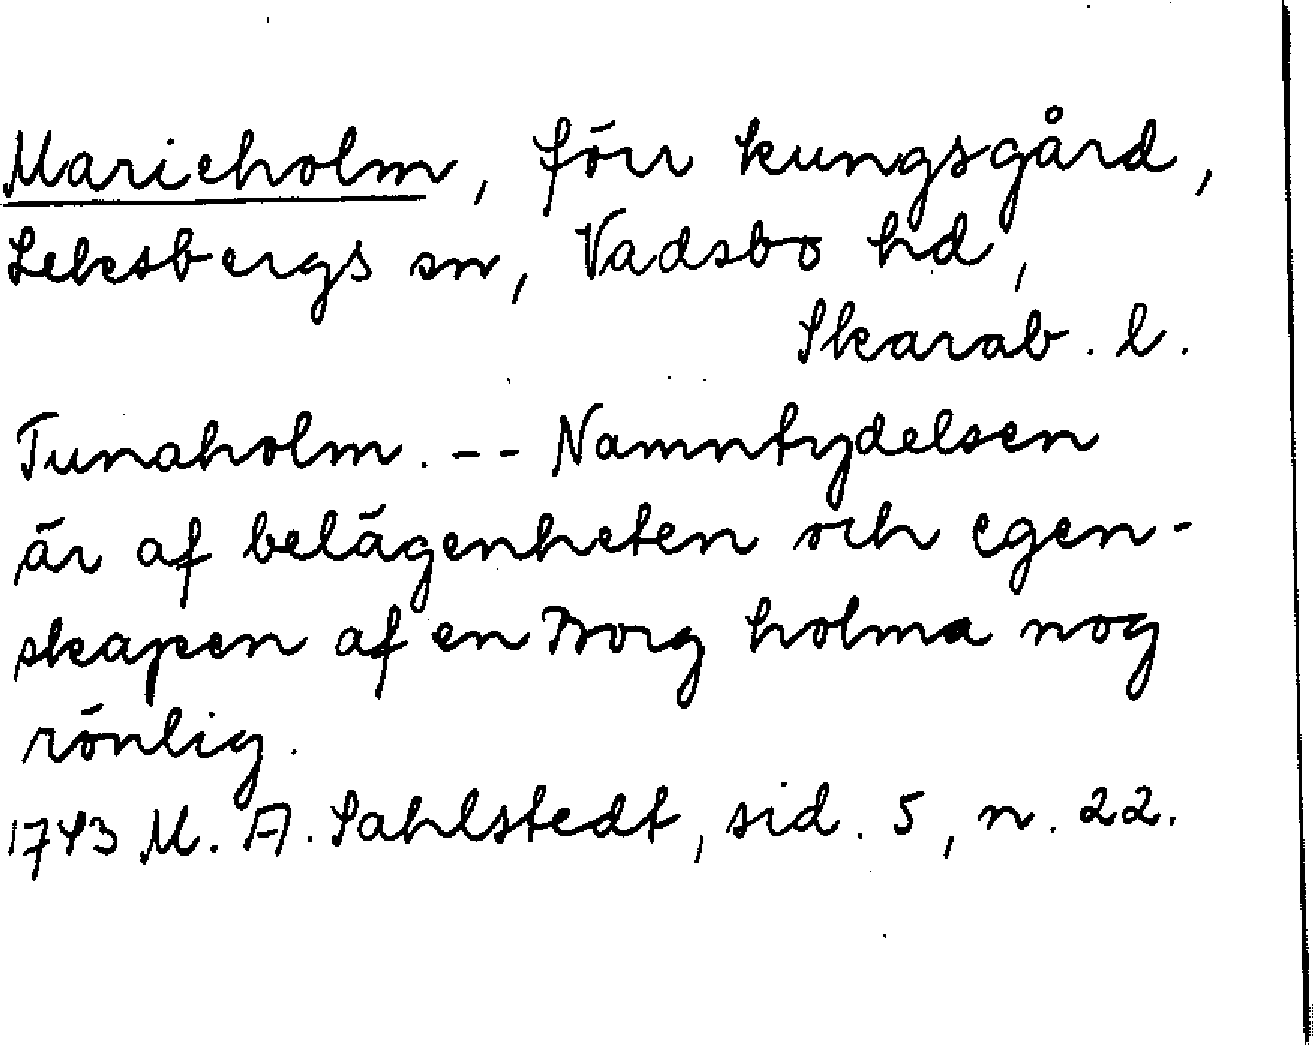 Marieholm, förr kungsgård,
Leksbergs sn, Vadsbo hd,
Skarab. l.
Tunaholm. -- Namntydelsen
är af belägenheten och egen-
skapen af en Borg holma nog
rönlig.
1743 M. A. Sahlstedt, sid. 5, n. 22.